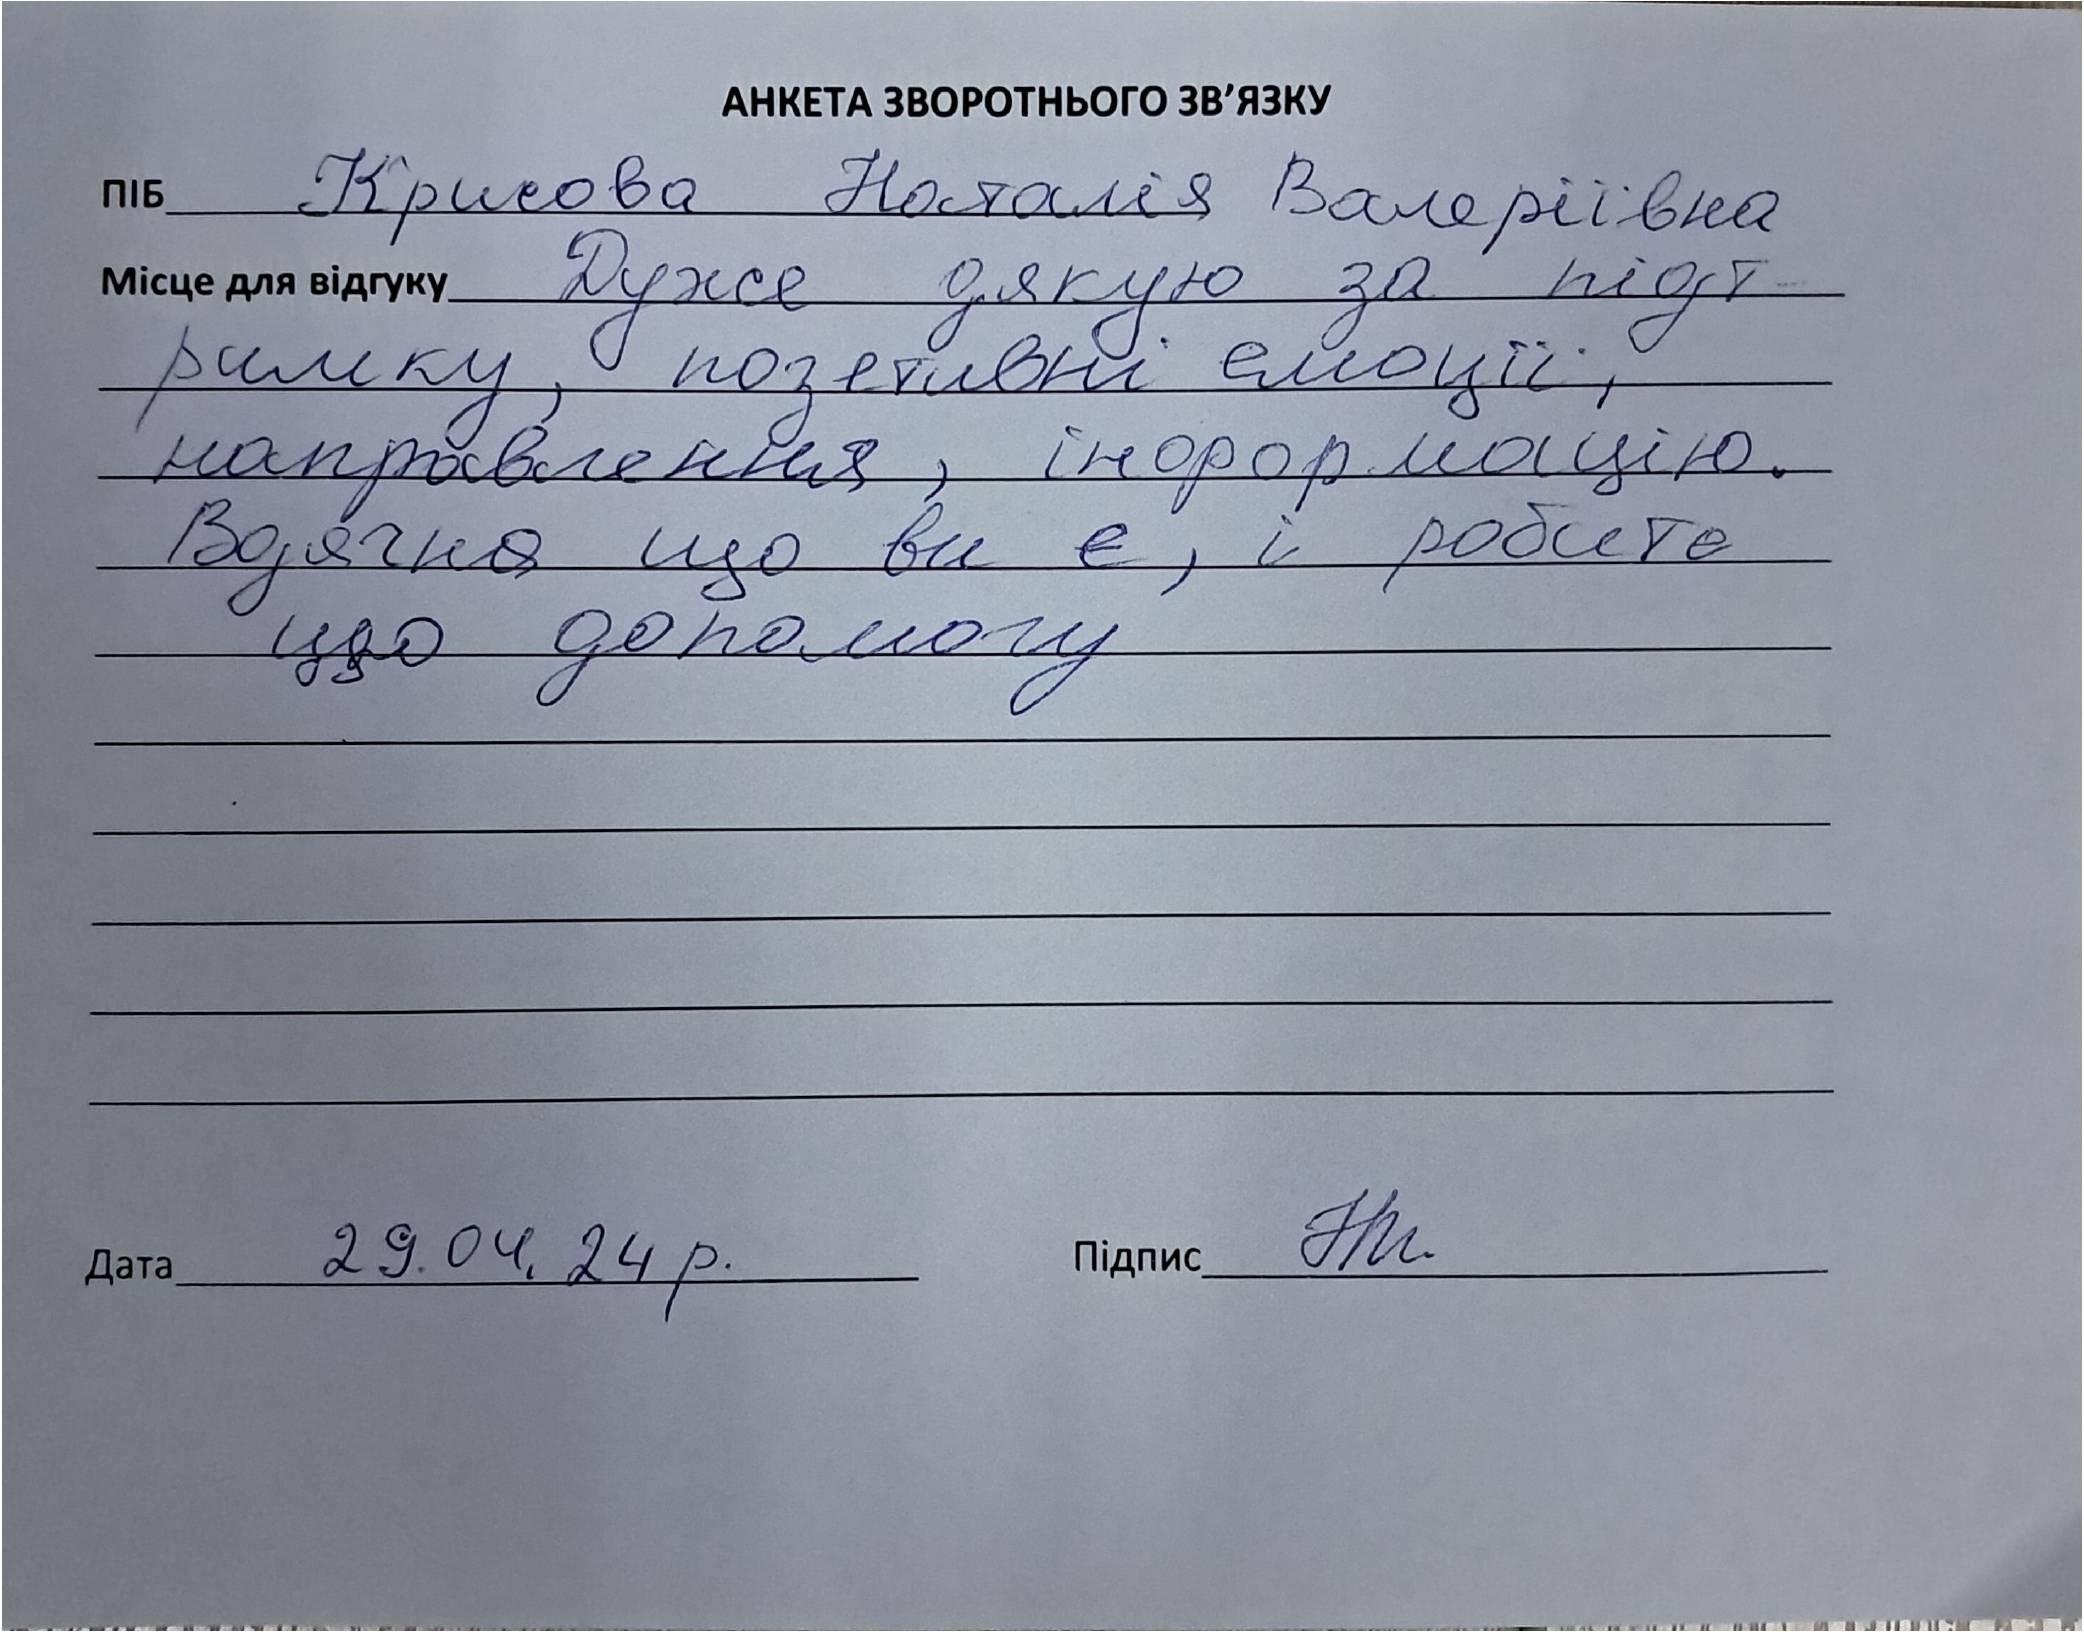 АНКЕТА ЗВОРОТНЬОГО ЗВ'ЯЗКУ
ПІБ Крисова Наталія Валеріївна
Місце для відгуку Дуже дякую за підт-
римку, позетивні емоції,
направлення, інформацію.
Вдячна що ви є, і робите
цю допомогу
Дата 29.04.24 р.
Підпис